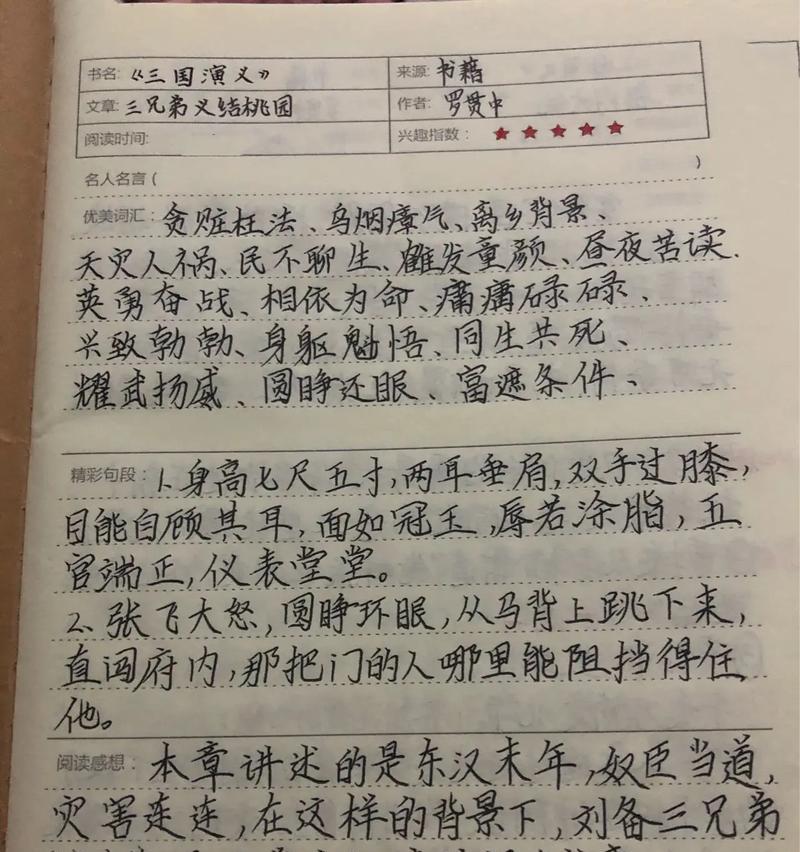 书名: 《三国演义》 来源: 书籍
文章: 三兄弟义结桃园 作者: 罗贯中
阅读时间: 兴趣指数: ★★★★★
名人名言 ( )
优美词汇: 贪赃枉法、乌烟瘴气、离乡背景、
天灾人祸、民不聊生、鹤发童颜、昼夜苦读.
英勇奋战、相依为命、庸庸碌碌、
兴致勃勃、身躯魁悟、同生共死、
耀武扬威、圆睁还眼、富遮条件、
精彩句段: 1.身高七尺五寸,两耳垂肩,双手过膝,
目能自顾其耳,面如冠玉,唇若涂脂,五
官端正,仪表堂堂。
2、张飞大怒,圆睁环眼,从马背上跳下来,
直闯府内,那把门的人哪里能阻挡得住
他。
阅读感想: 本章讲述的是东汉末年,奴臣当道,
灾害连连,在这样的背景下,刘备三兄弟